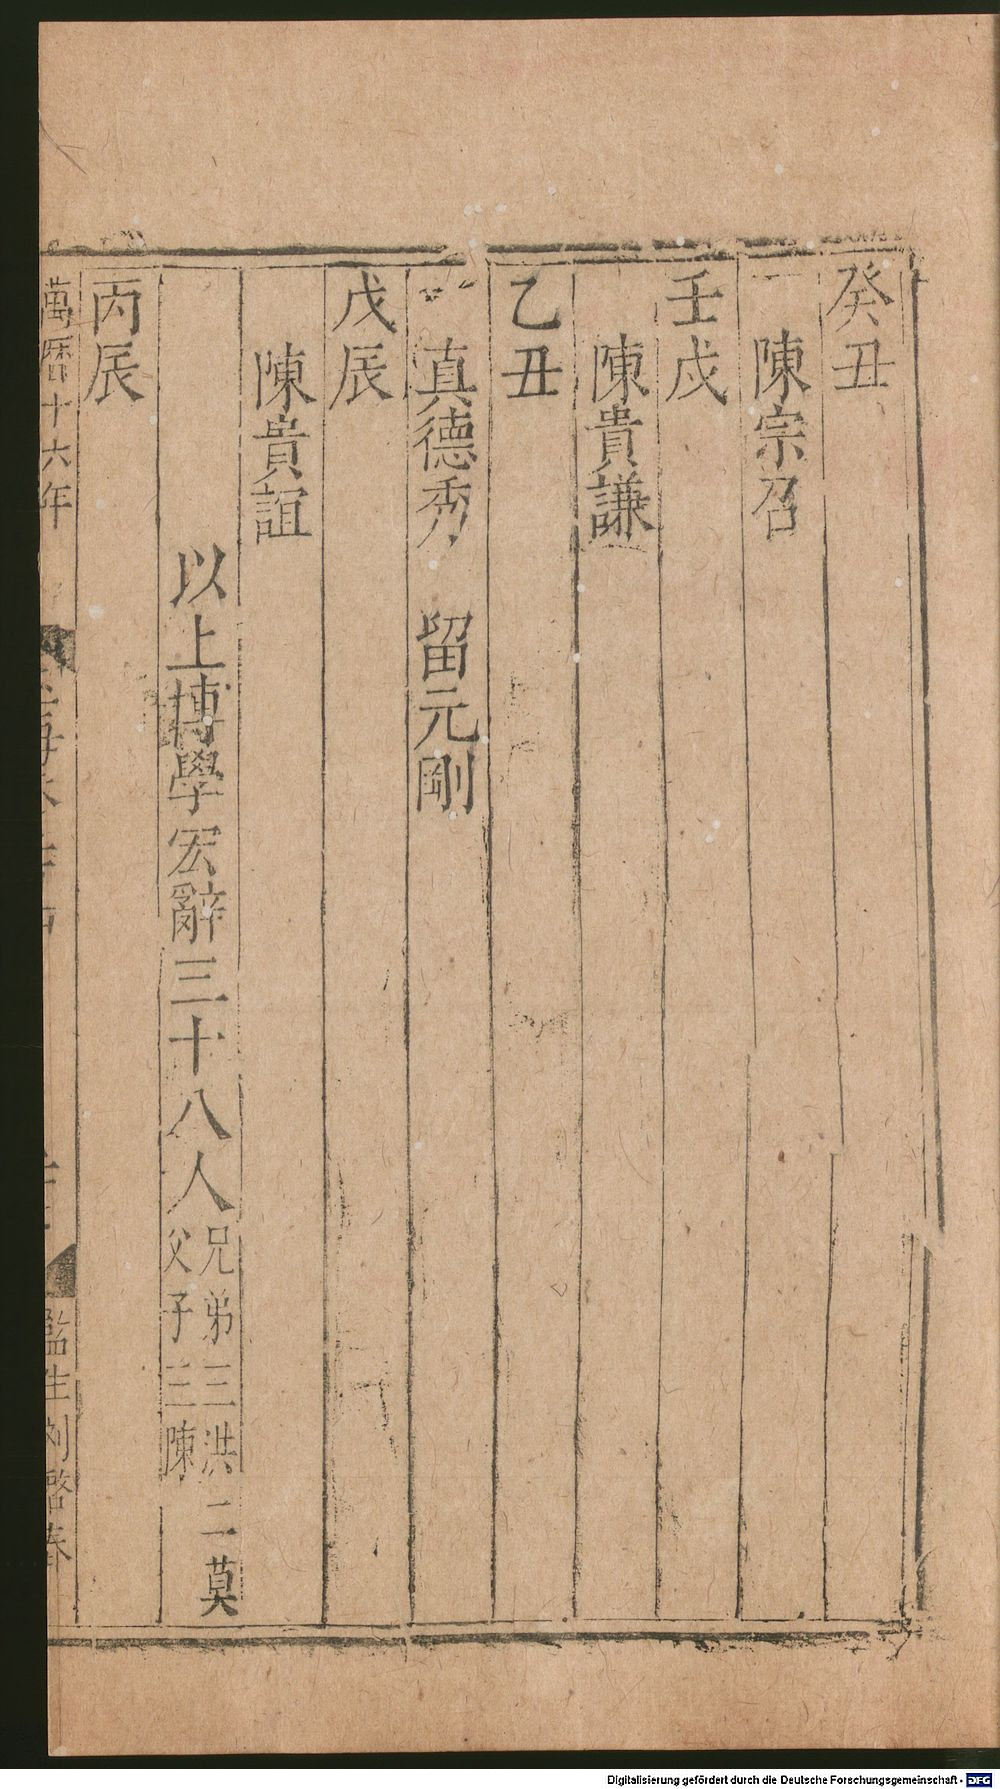 癸丑
陳宗召
壬戌
陳貴謙
乙丑
真德秀 留元剛
戊辰
陳貴誼
以上博學宏辭三十八人
兄弟三洪二莫
父子三陳
丙辰
萬曆十六年
監生劉啓春
Digitalisierung gefördert durch die Deutsche Forschungsgemeinschaft - DFG